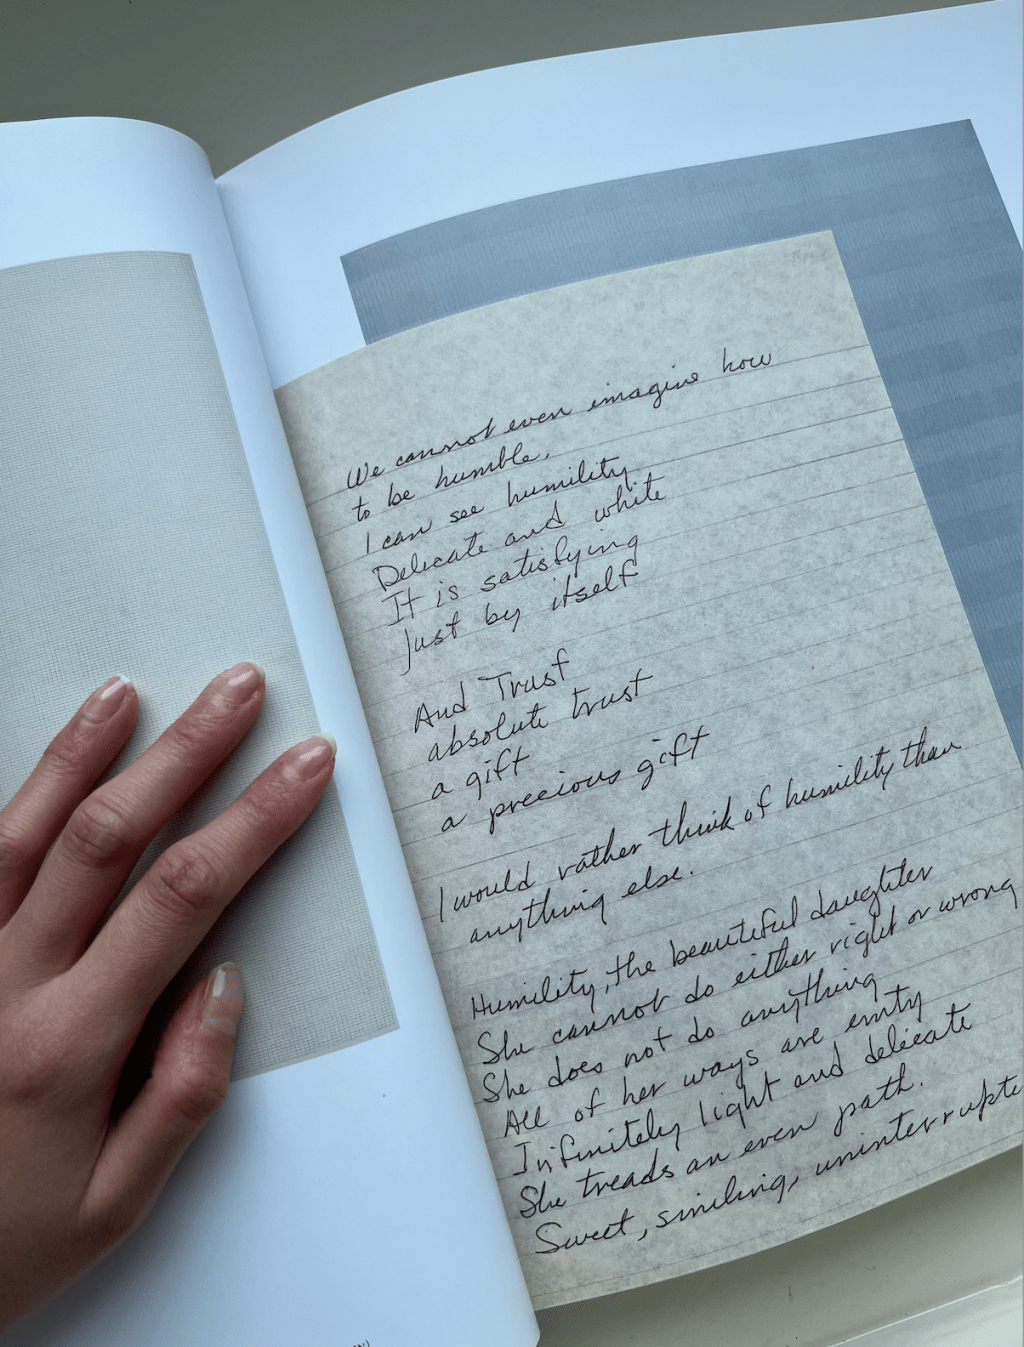 We cannot even imagine how
to be humble,
I can see humility
Delicate and white
It is satisfying
Just by itself
And Trust
absolute trust
a gift
a precious gift
I would rather think of humility than
anything else.
Humility, the beautiful daughter
She cannot do either right or wrong
She does not do anything
All of her ways are emty
Infinitely light and delicate
She treads an even path.
Sweet, smiling, uninterrupte